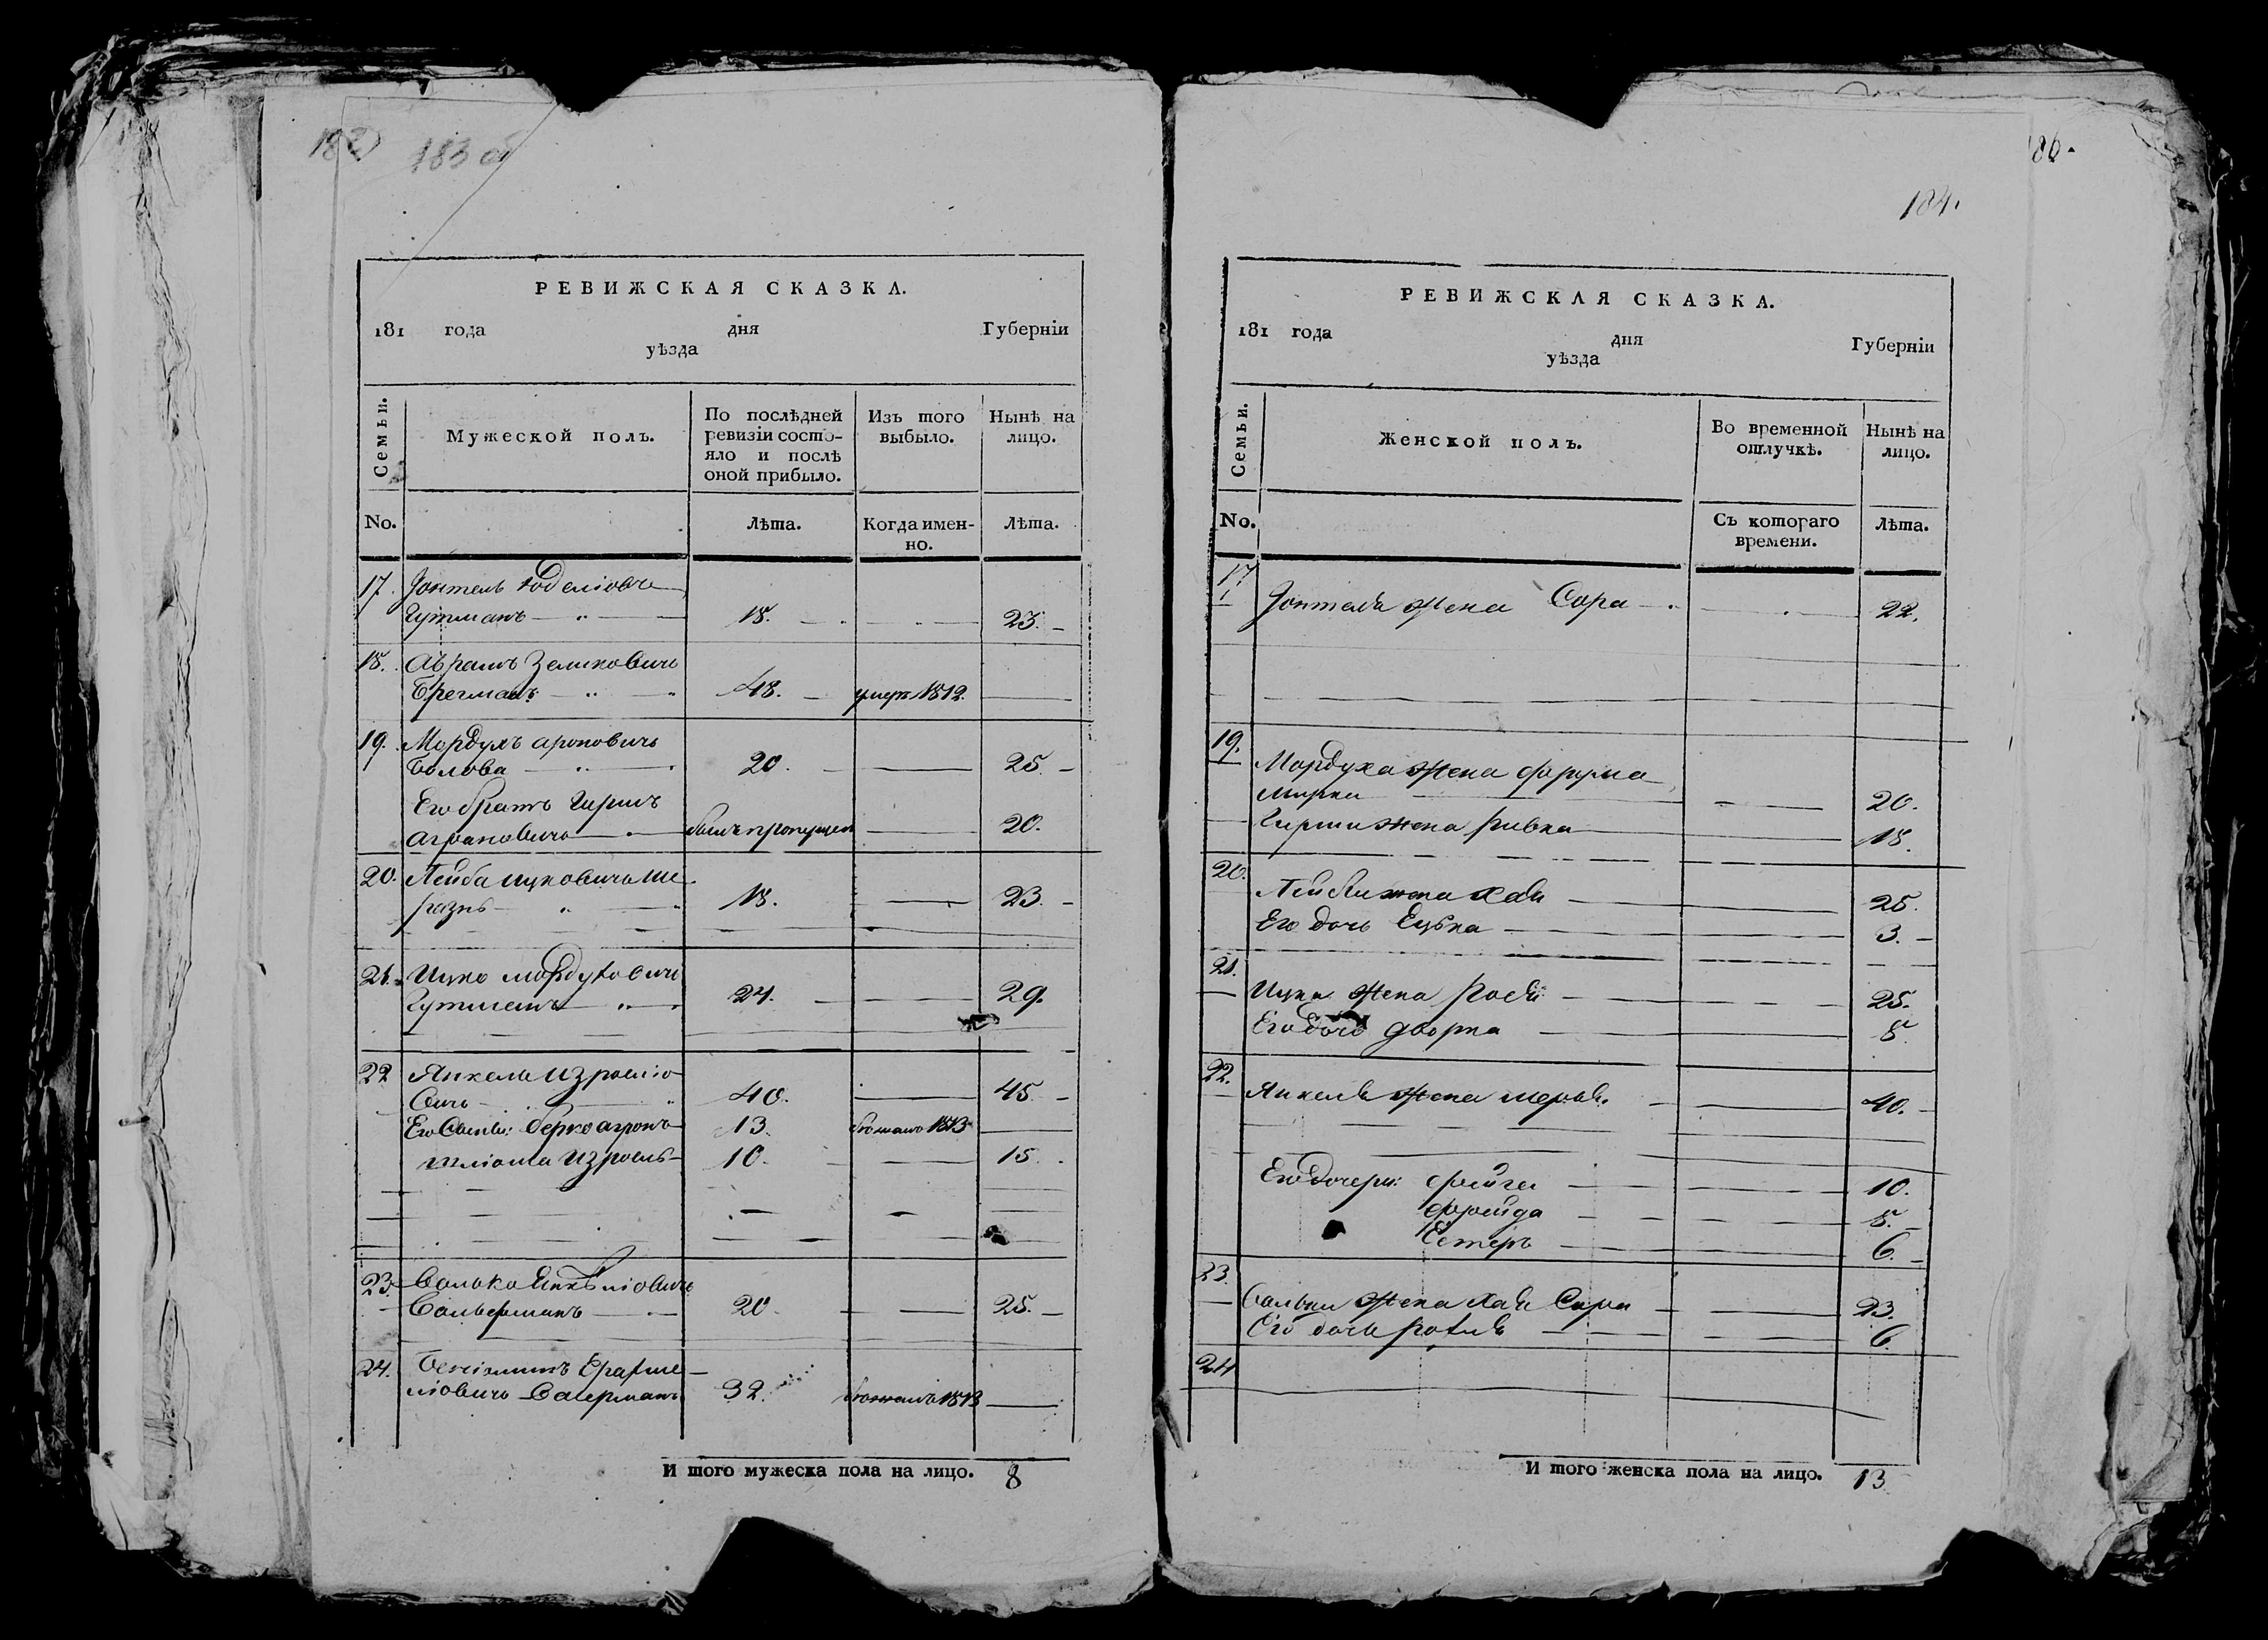 183 об
РЕВИЖСКАЯ СКАЗКА.
181 года дня Губерніи
уѣзда
Семьи.
Мужеской полъ.
По послѣдней ревизіи состо-
яло и послѣ оной прибыло.
Изъ того выбыло.
Нынѣ на лицо.
No.
Лѣта.
Когда имен-
но.
Лѣта.
17. Іоделіовичъ
Гутманъ 18. 23.
18. Абрамъ Зеликовичъ
Брегманъ 48. умеръ 1812.
19. Мордухъ Ароновичъ
20. 25.
Его братъ Гиршъ
Ароновичъ былъ пропущен 20.
20. Лейба Ицковичъ Ше-
18. 23.
21. Ицко Мордуховичъ
Гутманъ 24. 29.
22 Янкель Израеліо-
вичъ 40. 45.
Его Сыновья: Берко 13. бежалъ 1813
Шліома Израель 10. 15.
23. Волько
20. 25.
24. Беніоминъ
ліовичъ 32. бежалъ 1813
И того мужеска пола на лицо. 8
186.
184.
РЕВИЖСКАЯ СКАЗКА.
181 года дня Губерніи
уѣзда
Семьи.
Женской полъ.
Во временной отлучкѣ.
Нынѣ на лицо.
No.
Съ котораго времени.
Лѣта.
17
жена Сора 22.
19.
Мордуха жена Фрума
Мирка 20.
Гирша жена Ривка 18.
20.
Лейбы жена Хая 25.
Его дочь 3.
21.
Ицка жена 25.
Его дочь Дворка 8.
22.
Янкеля жена 40.
Его дочери: Фейга 10.
Фрейда 8.
Естеръ 6.
23.
жена Хая Сора 23.
Его дочь 6.
24
И того женска пола на лицо. 13